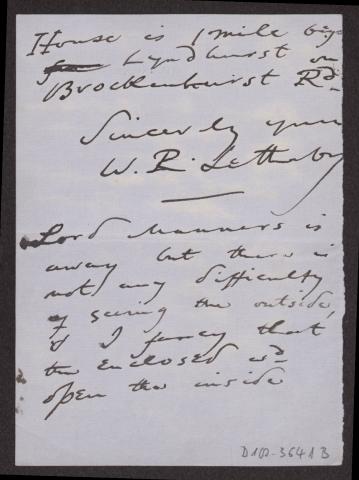 House is 1 mile bey
from Lyndhurst on
Brockenhurst Rd.
Sincerely your
W. R. Lethaby
Lord Manners is
away but there is
not any difficulty
of seeing the outside,
& I fancy that
the enclosed wd
open the inside
D1(2)-3641B